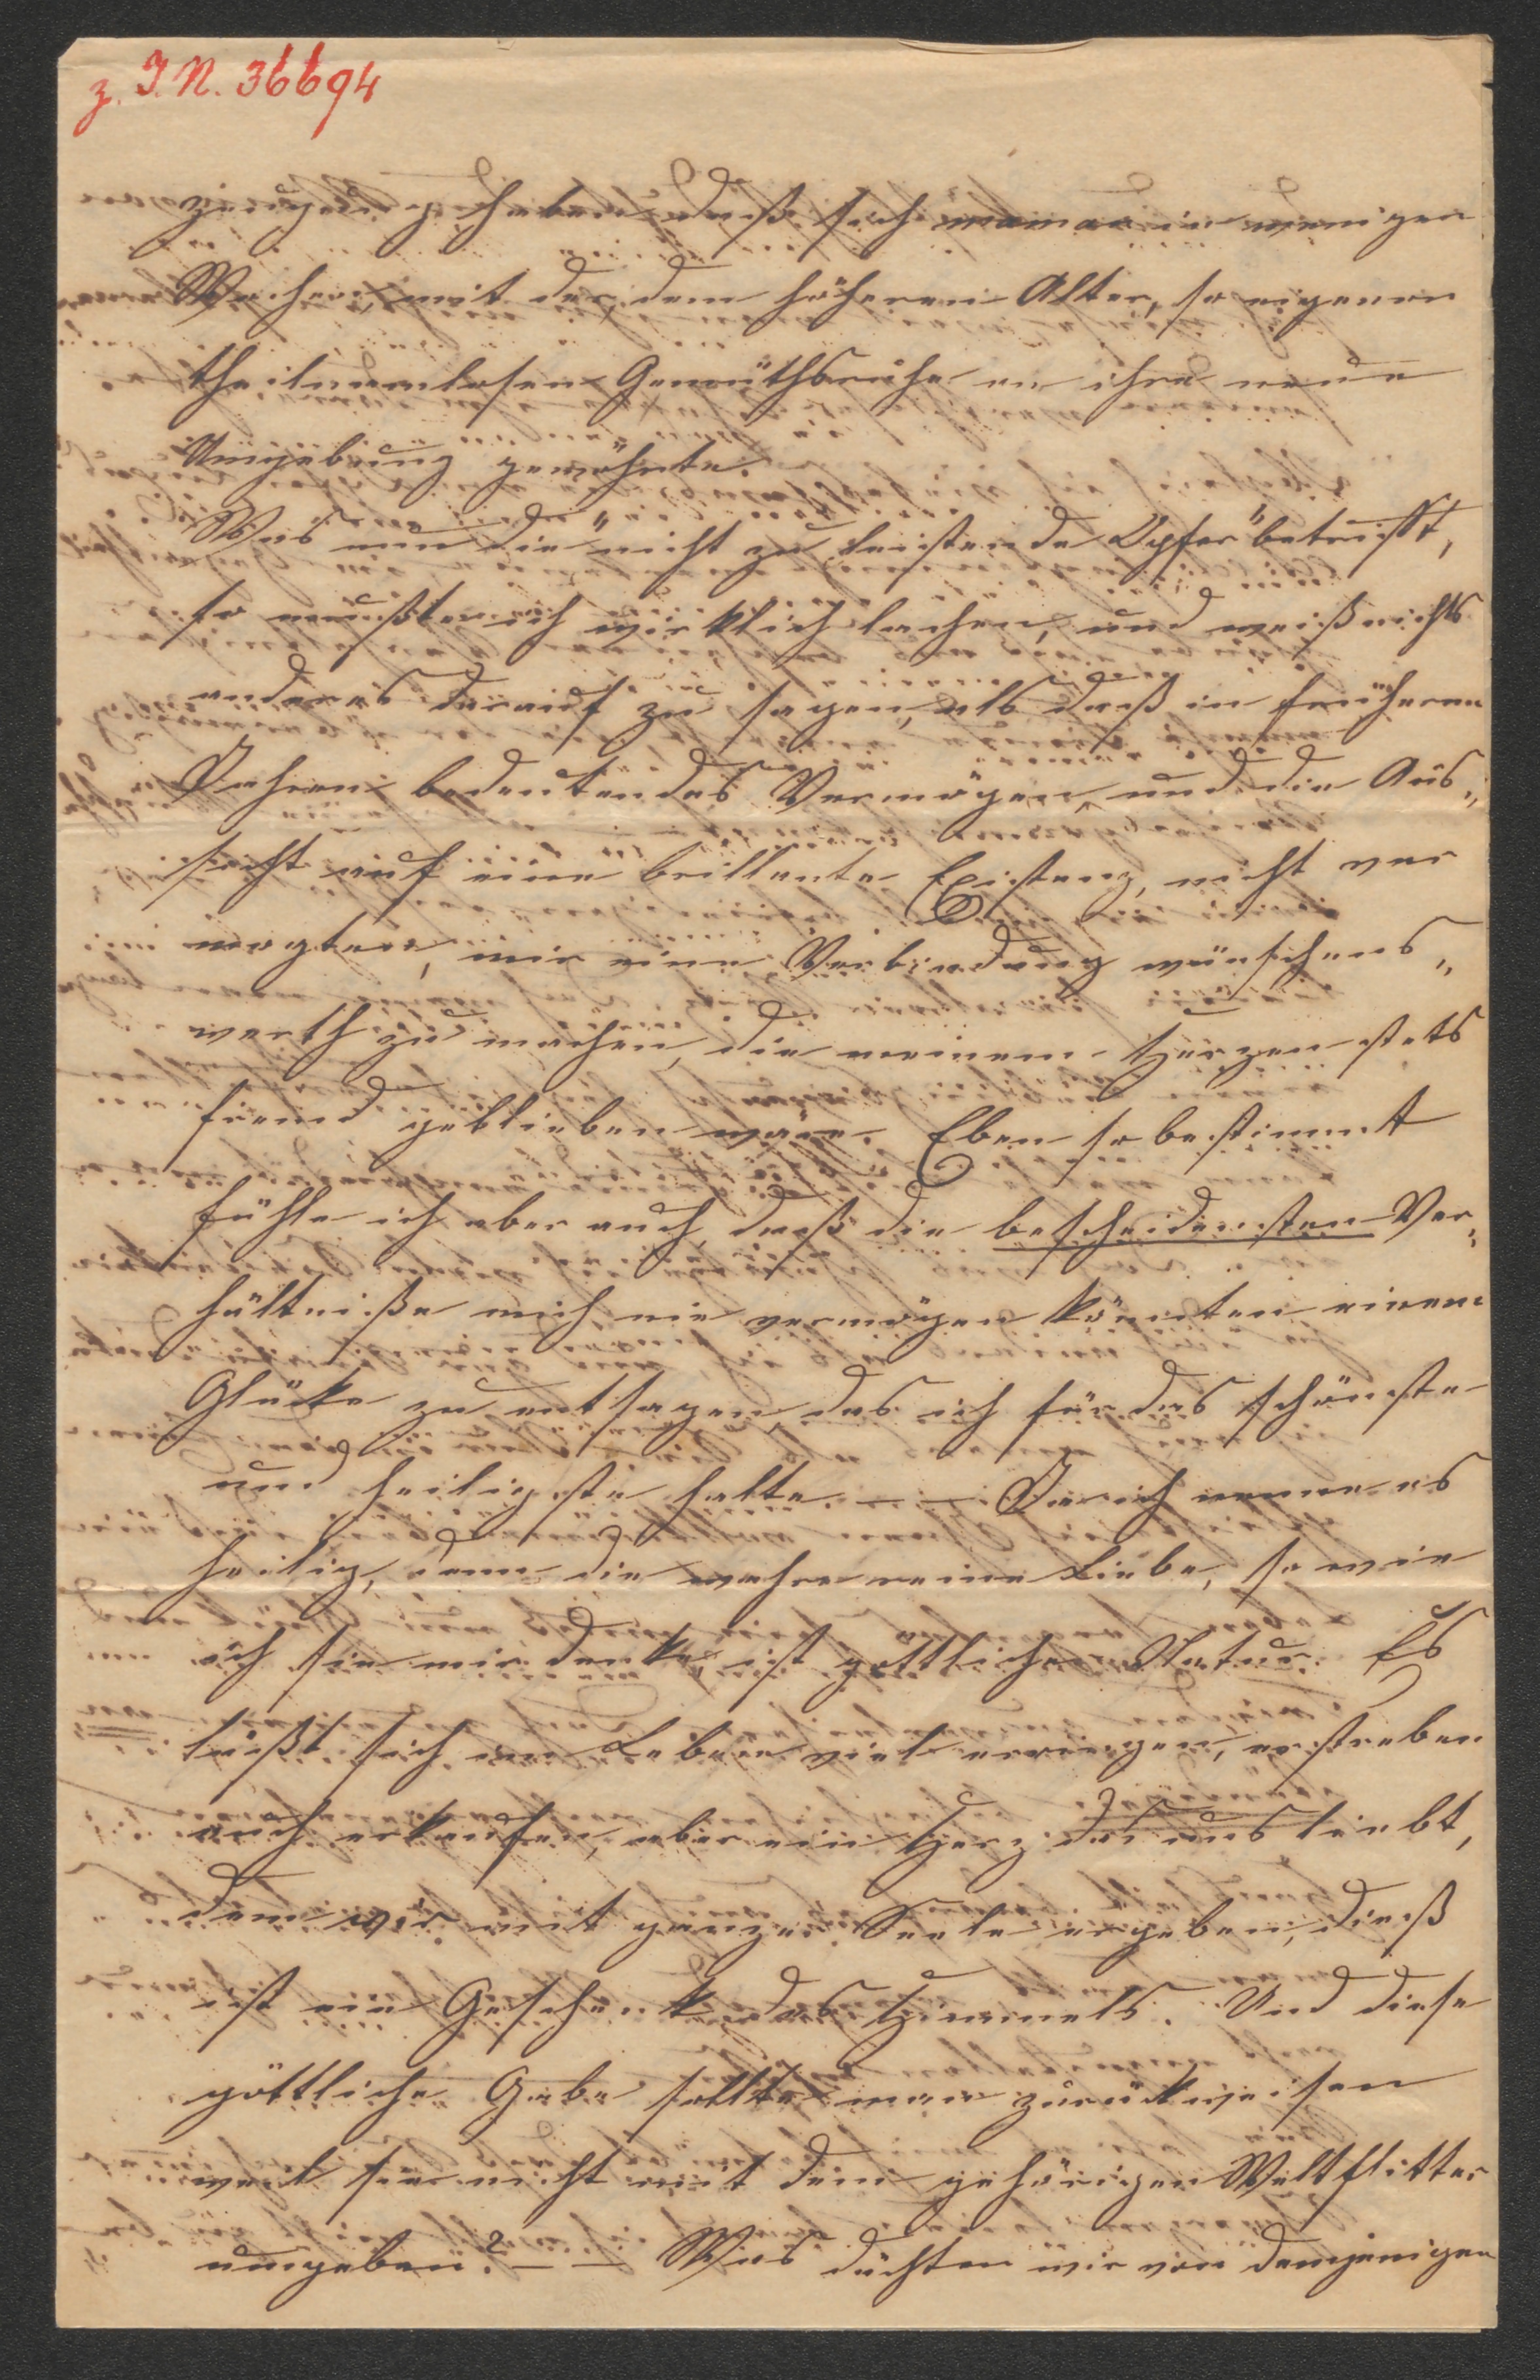 z. I.N. 36694
zeugung haben daß sich mama in wenigen
Wochen, mit der dem höheren Alter, so eigenen
theilnamlosen Gemüthsruhe an ihre neue
Umgebung gewöhnte.
Was nun die "nicht zu leistende Opfer" betrifft,
so mußte ich wirklich lachen, und weiß nichts
anderes darauf zu sagen, als daß in früheren
Jahren bedeutendes Vermögen, und die Aus„
sicht auf eine brillante Existenz, nicht ver
mogten, mir eine Verbindung wünschens„
werth zu machen, die meinem Herzen stets
fremd geblieben wäre. Eben so bestimmt
fühle ich aber auch, daß die bescheidensten Ver„
hältniße mich nie vermögen könnten einem
Glücke zu entsagen, das ich für das schönste
und heiligste halte. — — Ja ich nenne es
heilig, denn die wahre reine Liebe, so wie
ich sie mir denke, ist göttlicher Natur. Es
läßt sich im Leben viel erringen, erstreben
auch erkaufen, aber ein Herz das uns liebt,
dem wir mit ganzer Seele ergeben, dieß
ist ein Geschenk des Himmels. Und diese
göttliche Gabe sollte man zurückweisen
weil sie nicht mit dem gehörigen Weltflitter
umgeben? — — Was dächten wir von demjenigen